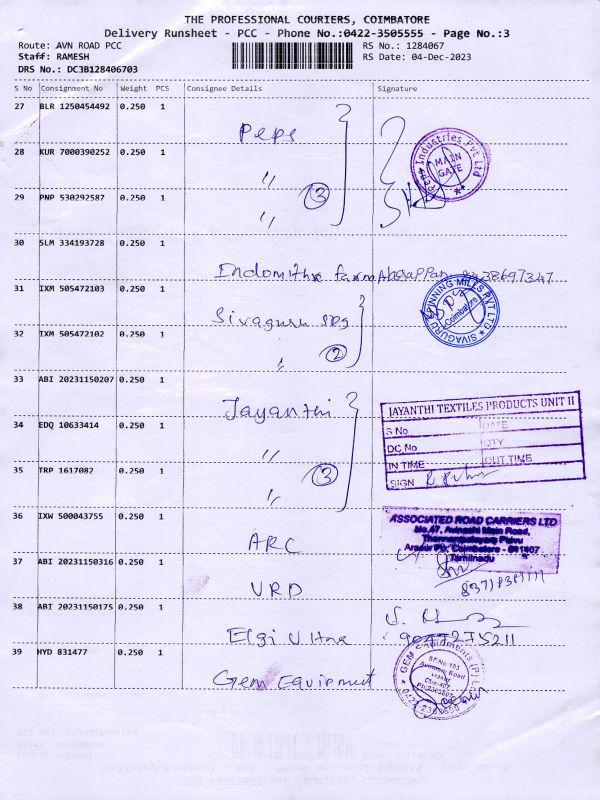 THE PROFESSIONAL COURIERS, COIMBATORE
Delivery Runsheet - PCC - Phone No.:0422-3505555 - Page No.:3
Route: AVN ROAD PCC
RS No.: 1284067
Staff: RAMESH
RS Date: 04-Dec-2023
DRS No.: DC3B128406703
S No Consignment No Weight PCS Consignee Details Signature
27 BLR 1250454492 0.250 1
Peps
28 KUR 7000390252 0.250 1
Industries Pvt Ltd
MAIN
GATE
"
29 PNP 530292587 0.250 1
3
"
30 SLM 334193728 0.250 1
31 IXM 505472103 0.250 1
Sivaguru spg
SIVAGURU SPINNING MILLS PVT LTD
Coimbatore
32 IXM 505472102 0.250 1
" 2
33 ABI 20231150207 0.250 1
Jayanthi
JAYANTHI TEXTILES PRODUCTS UNIT II
S No DATE
34 EDQ 10633414 0.250 1
DC No QTY
"
IN TIME OUT TIME
35 TRP 1617082 0.250 1
3
SIGN
"
36 IXW 500043755 0.250 1
ASSOCIATED ROAD CARRIERS LTD
ARC
No.47, Avinashi Main Road,
Coimbatore - 641407
Tamilnadu
37 ABI 20231150316 0.250 1
VRD
38 ABI 20231150175 0.250 1
Elgi
9047275211
39 HYD 831477 0.250 1
Gem Equipment
GEM
SF.No:103
Avinashi Road